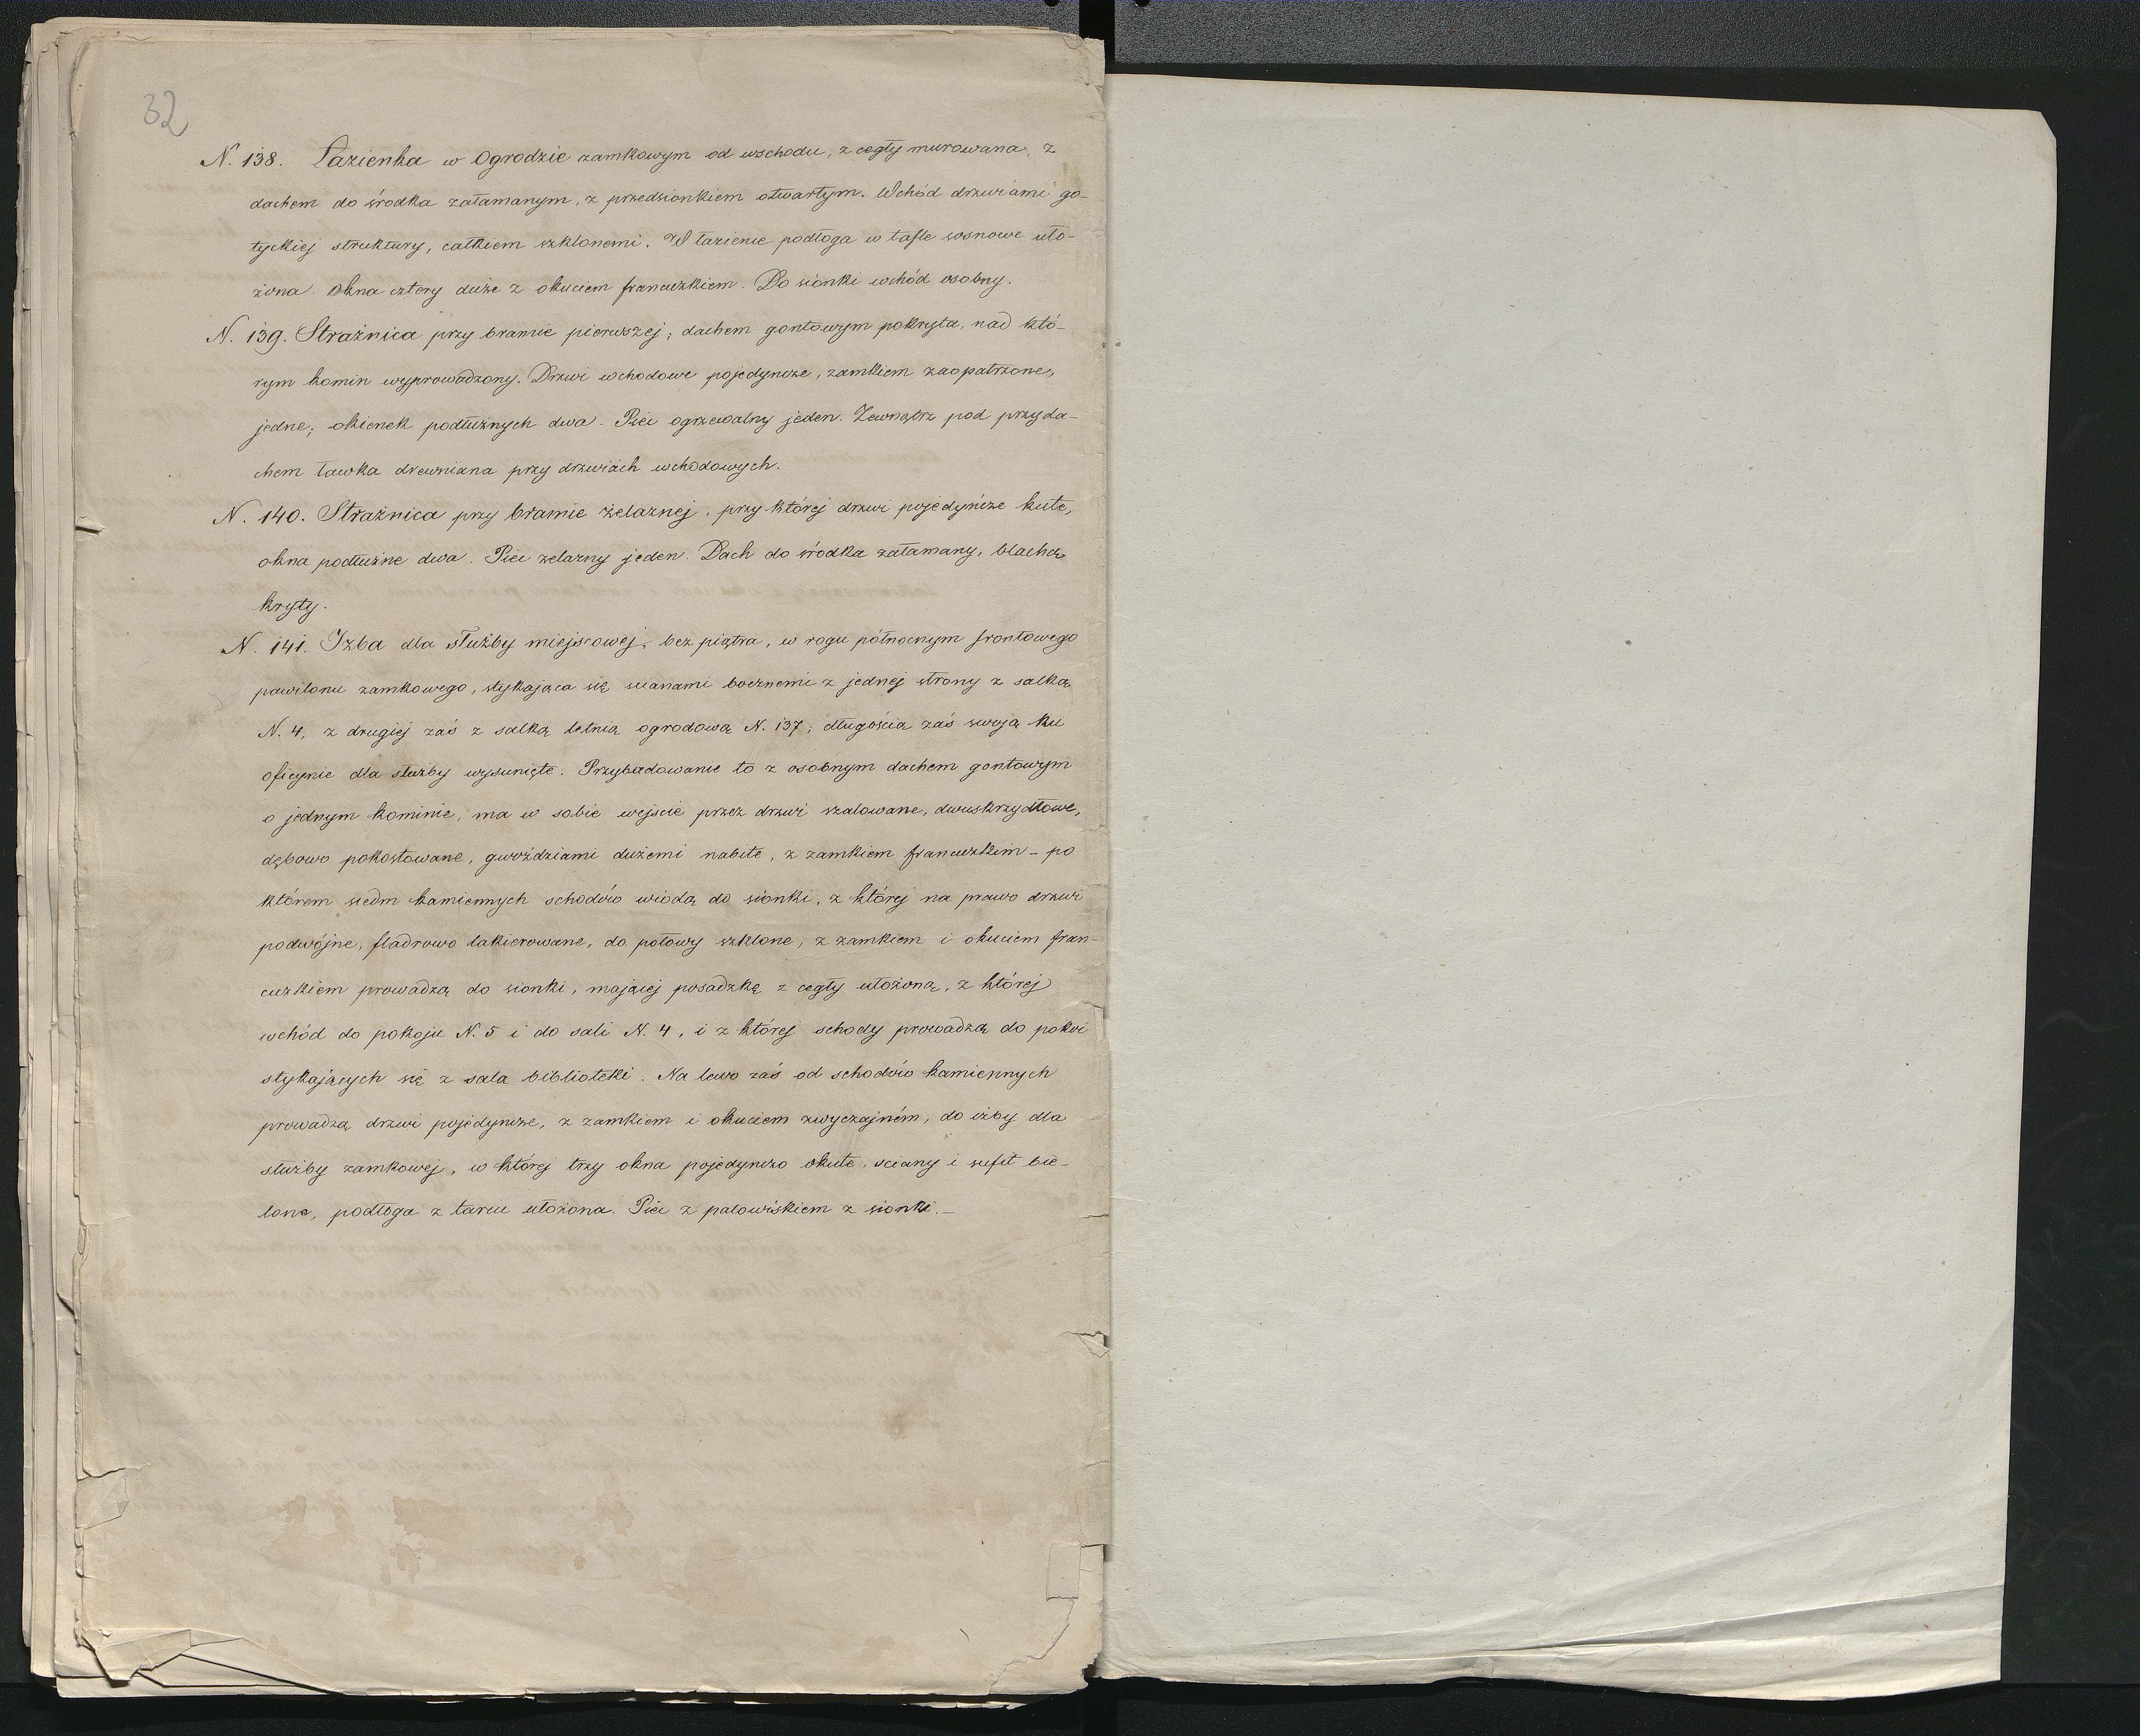 32
N. 138. Łazienka w Ogrodzie zamkowym od wschodu, z cegły murowana, z
dachem do środka załamanym, z przedsionkiem otwartym. Wchód drzwiami go-
tyckiej struktury, całkiem szklonemi. W łazience podłoga w tafle sosnowe uło-
żona. Okna cztery duże z okuciem francuzkiem. Do sionki wchód osobny.
N. 139. Strażnica przy bramie pierwszej, dachem gontowym pokryta, nad któ-
rym komin wyprowadzony. Drzwi wchodowe pojedyncze, zamkiem zaopatrzone,
jedne; okienek podłużnych dwa. Piec ogrzewalny jeden. Zewnątrz pod przyda-
chem ławka drewniana przy drzwiach wchodowych.
N. 140. Strażnica przy bramie żelaznej, przy której drzwi pojedyńcze kute,
okna podłużne dwa. Piec żelazny jeden. Dach do środka załamany, blachą
kryty.
N. 141. Izba dla służby miejscowej, bez piątra, w rogu północnym frontowego
pawilonu zamkowego, stykająca się ścianami bocznemi z jednej strony z salką
N. 4, z drugiej zaś z salką letnią ogrodową N. 137; długością zaś swoją ku
oficynie dla służby wysunięte. Przybudowanie to z osobnym dachem gontowym
o jednym kominie, ma w sobie wejście przez drzwi szalowane, dwuskrzydłowe,
dębowo pokostowane, gwoździami dużemi nabite, z zamkiem francuzkim - po
którem siedm kamiennych schodów wiodą do sionki, z której na prawo drzwi
podwójne, fladrowo lakierowane, do połowy szklone, z zamkiem i okuciem fran-
cuzkiem prowadzą do sionki, mającej posadzkę z cegły ułożoną, z której
wchód do pokoju N. 5 i do sali N. 4, i z której schody prowadzą do pokoi
stykających się z sala biblioteki. Na lewo zaś od schodów kamiennych
prowadzą drzwi pojedyncze, z zamkiem i okuciem zwyczajném, do izby dla
służby zamkowej, w której trzy okna pojedynczo okute, ściany i sufit bie-
lone, podłoga z tarcic ułożona. Piec z palowiskiem z sionki. -